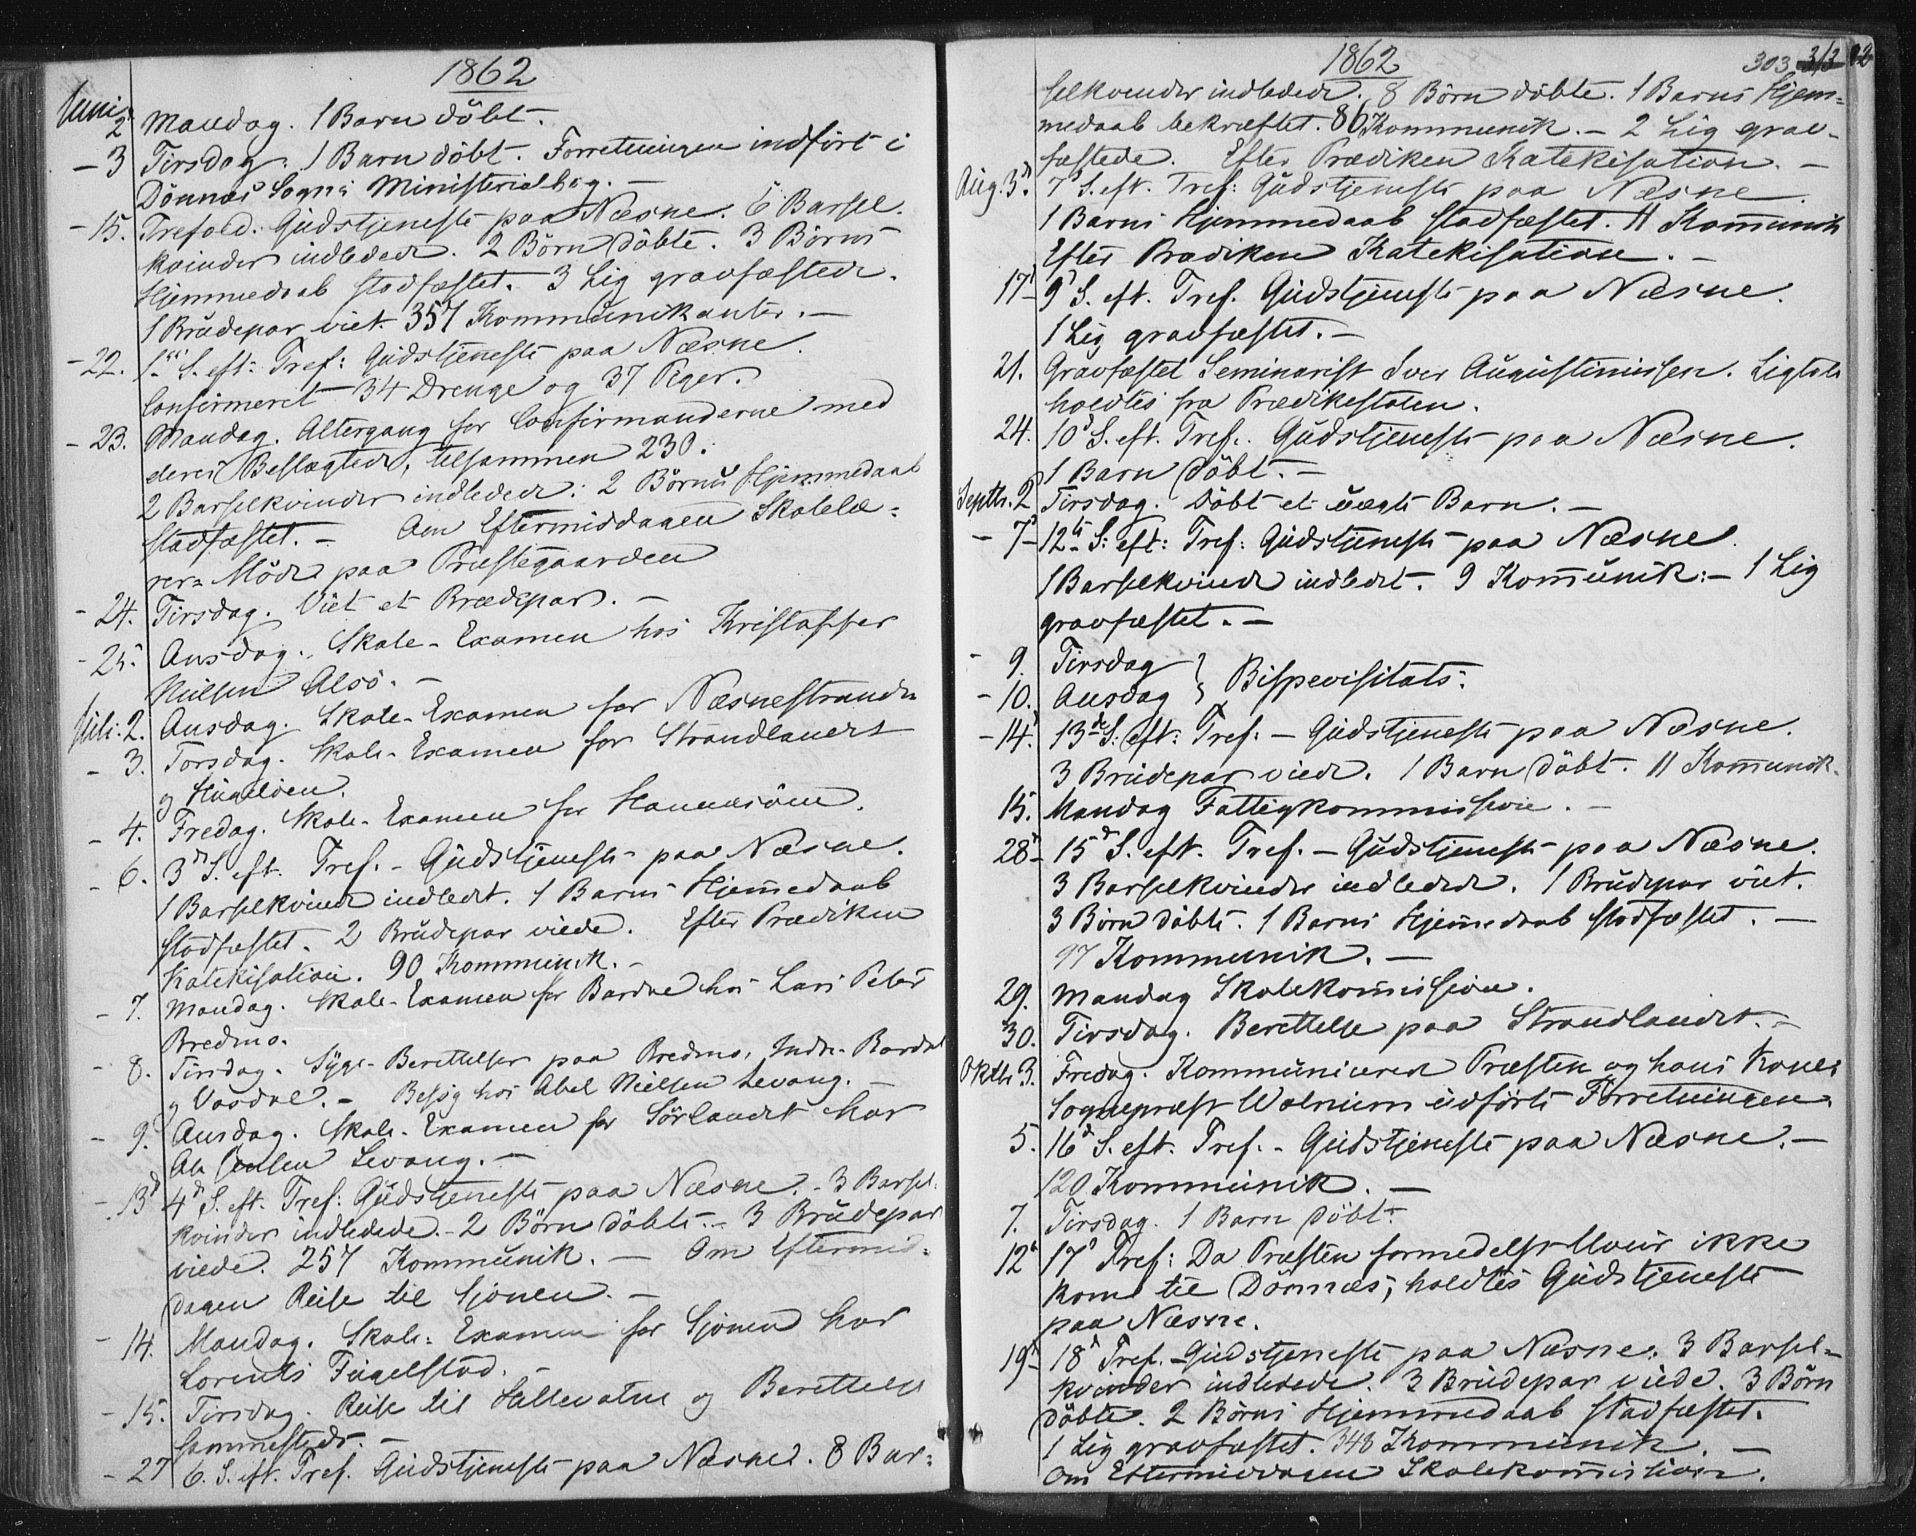 1862
Juni 2 Mandag. 1 Barn döbt.
- 3 Tirsdag. 1 Barn döbt. Forretningen indfört i
Dönnæs Sogns Ministerialbog. -
- 15. Trefold. Gudstjeneste paa Næsne. 6 Barsel-
kvinder indledede. 2 Börn döbte. 3 Börns
Hjemmedaab stadfæstet. 3 Lig gravfæstede.
1 Brudepar viet. 357 Kommunikanter. -
- 22. 1ste S. eft. Tref: Gudstjeneste paa Næsne.
Confirmeret 34 Drenge og 37 Piger.
- 23. Mandag. Altergang for Confirmanderne med
deres Beslægtede, tilsammen 230.
2 Barselkvinder indledede. 2 Börns Hjemmedaab
stadfæstet. - Om Eftermiddagen Skolelæ-
rer-Möde paa Præstegaarden
- 24. Tirsdag. Viet et Brudepar. -
- 25. Onsdag. Skole-Examen hos Kristoffer
Nielsen Alsö. -
Juli 2. Onsdag. Skole-Examen for Næsnestranden
- 3. Torsdag. Skole-Examen for Strandlandet
og Hugelöen.
- 4. Fredag. Skole-Examen for Hannæsöen.
- 6. 3d S. eft. Tref. - Gudstjeneste paa Næsne.
1 Barselkvinde indledet. 1 Barns Hjemedaab
stadfæstet. 2 Brudepar viede. Efter Prædiken
Katekisation. 90 Kommunik. -
- 7. Mandag. Skole-Examen for Bardne hos Lars Peter
Bredmo.
- 8. Tirsdag. Syge-Berettelser paa Bredmo, Indre Bardal
og Vasdal. - Besög hos Abel Nielsen Levang. -
- 9. Onsdag. Skole-Examen for Sörlandet hos
Ole Jensen Levang. -
- 13d 4d S. eft. Tref: Gudstjeneste paa Næsne. - 3 Barsel-
kvinder indledede. - 2 Börn döbte. - 3 Brudepar
viede. 257 Kommunik. - Om Eftermid-
dagen Reise til Sjonen. -
- 14. Mandag. Skole-Examen for Sjonen hos
Lorents Fugelstad. -
- 15. Tirsdag. Reise til Hallevatne og Berettelse
sammesteds. -
- 27 6. S. eft. Tref. Gudstjeneste paa Næsne. 8 Bar-
1862 303
selkvinder indledede. 8 Börn döbte. 1 Barns Hjem-
medaab bekræftet. 86 Kommunik. - 2 Lig grav-
fæstede. Efter Prædiken Katekisation. -
Aug. 3d 7d S. eft. Tref: Gudstjeneste paa Næsne.
1 Barns Hjemmedaab stadfæstet. 11 Komunik
Efter Prædiken Katekisation. -
17d 9d S. eft. Tref. Gudstjeneste paa Næsne.
1 Lig gravfæstet. -
21. Gravfæstet Seminarist Iver Augustinussen. Ligtale
holdtes fra Prædikestolen.
24. 10d S. eft. Tref. Gudstjeneste paa Næsne.
1 Barn döbt. -
Septb. 2 Tirsdag. Döbt et uægte Barn. -
- 7d 12te S. eft: Tref: Gudstjeneste paa Næsne.
1 Barselkvinde indledet. 9 Komunik: - 1 Lig
gravfæstet. -
- 9. Tirsdag
- 10. Onsdag } Bispevisitats.
- 14d 13de S. eft: Tref. - Gudstjeneste paa Næsne.
3 Brudepar viede. 1 Barn döbt. 11 Komunik.
15. Mandag Fattigkommission. -
28d 15d S. eft. Tref. - Gudstjeneste paa Næsne.
3 Barselkvinder indledede. 1 Brudepar viet.
3 Börn döbte. 1 Barns Hjemedaab stadfæstet. -
97 Kommunik. -
29. Mandag Skolekomission.
30. Tirsdag. Berettelse paa Strandlandet. -
Oktb. 3. Fredag. Kommunicerede Præsten og hans Kone.
Sognepræst Wolnum udförte Forretningen.
5. 16d S. eft. Tref. - Gudstjeneste paa Næsne. -
120 Kommunik. -
7. Tirsdag. 1 Barn döbt.
12d 17d Tref: Da Præsten formedelst Uveir ikke
kom til Dönnæs, holdtes Gudstjeneste
paa Næsne.
19d 18d Tref. - Gudstjeneste paa Næsne. 3 Barsel-
kvinder indledede. 3 Brudepar viede. 3 Börn
döbte. 2 Börns Hjemmedaab stadfæstet.
1 Lig gravfæstet. 348 Kommunik. -
Om Eftermiddagen Skolekomission.